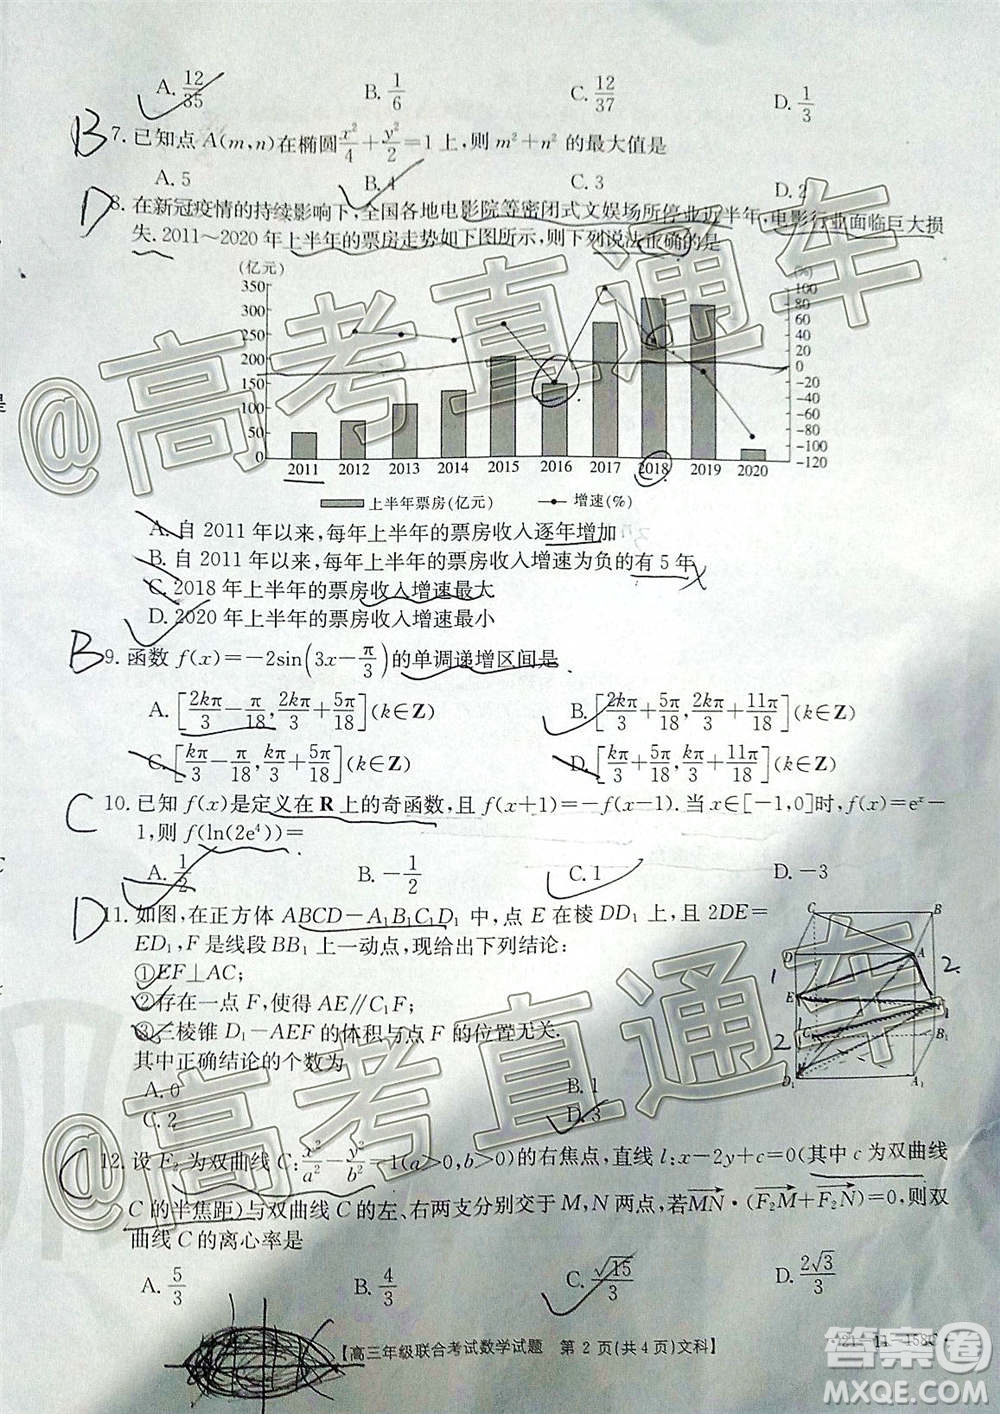 A. 12/35 B. 1/6 C. 12/37 D. 1/3
B 7. 已知点 A(m,n)在椭圆x²/4+y²/2=1上,则 m²+n² 的最大值是
A. 5 B. 4 C. 3 D. 2
D 8. 在新冠疫情的持续影响下,全国各地电影院等密闭式文娱场所停业近半年,电影行业面临巨大损
失. 2011～2020年上半年的票房走势如下图所示,则下列说法正确的是
(亿元) (%)
350 300 250 200 150 100 50 0
100 80 60 40 20 0 -20 -40 -60 -80 -100 -120
2011 2012 2013 2014 2015 2016 2017 2018 2019 2020
上半年票房(亿元) 增速(%)
A. 自 2011 年以来,每年上半年的票房收入逐年增加
B. 自 2011 年以来,每年上半年的票房收入增速为负的有 5 年
C. 2018 年上半年的票房收入增速最大
D. 2020 年上半年的票房收入增速最小
B 9. 函数 f(x)=-2sin(3x-π/3)的单调递增区间是
A. [2kπ/3-π/18,2kπ/3+5π/18](k∈Z) B. [2kπ/3+5π/18,2kπ/3+11π/18](k∈Z)
C. [kπ/3-π/18,kπ/3+5π/18](k∈Z) D. [kπ/3+5π/18,kπ/3+11π/18](k∈Z)
C 10. 已知 f(x)是定义在 R 上的奇函数,且 f(x+1)=-f(x-1). 当 x∈[-1,0]时,f(x)=eˣ-
1,则 f(ln(2e⁴))=
A. 1/2 B. -1/2 C. 1 D. -3
D 11. 如图,在正方体 ABCD-A₁B₁C₁D₁ 中,点 E 在棱 DD₁ 上,且 2DE=
ED₁,F 是线段 BB₁ 上一动点,现给出下列结论:
①EF⊥AC;
②存在一点 F,使得 AE∥C₁F;
③三棱锥 D₁-AEF 的体积与点 F 的位置无关.
其中正确结论的个数为
A. 0 B. 1
C. 2 D. 3
C B D A E B₁ D₁ A₁
1 2 2 1
C 12. 设 F₂ 为双曲线 C:x²/a²-y²/b²=1(a>0,b>0)的右焦点,直线 l:x-2y+c=0(其中 c 为双曲线
C 的半焦距)与双曲线 C 的左、右两支分别交于 M,N 两点,若MN·(F₂M+F₂N)=0,则双
曲线 C 的离心率是
A. 5/3 B. 4/3 C. √15/3 D. 2√3/3
【高三年级联合考试数学试题 第 2 页(共 4 页)文科】
@高考直通车
@高考直通车
答案圈
MXQE.COM